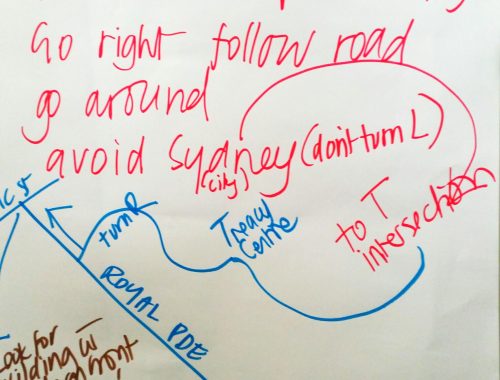 Go right follow road
go around
avoid Sydney (don't turn L)
(city)
to T
intersection
Treacy
Centre
turn R
ROYAL PDE
Look for
building w
front